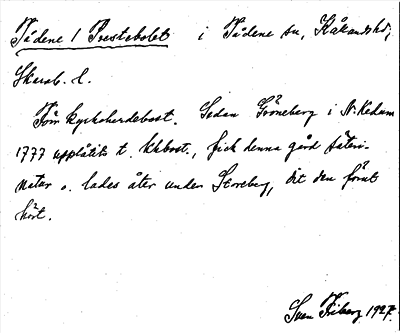 Tådene 1 Prestebolet i Tådene sn, Kåkands hd,
Skarab. l.
Förr kyrkoherdebost. Sedan Gröneberg i N. Kedum
1777 upplåtits t. khbost., fick denna gård säteri-
natur o. lades åter under Storeberg, dit den förut
hört.
Sven Friberg 1927.